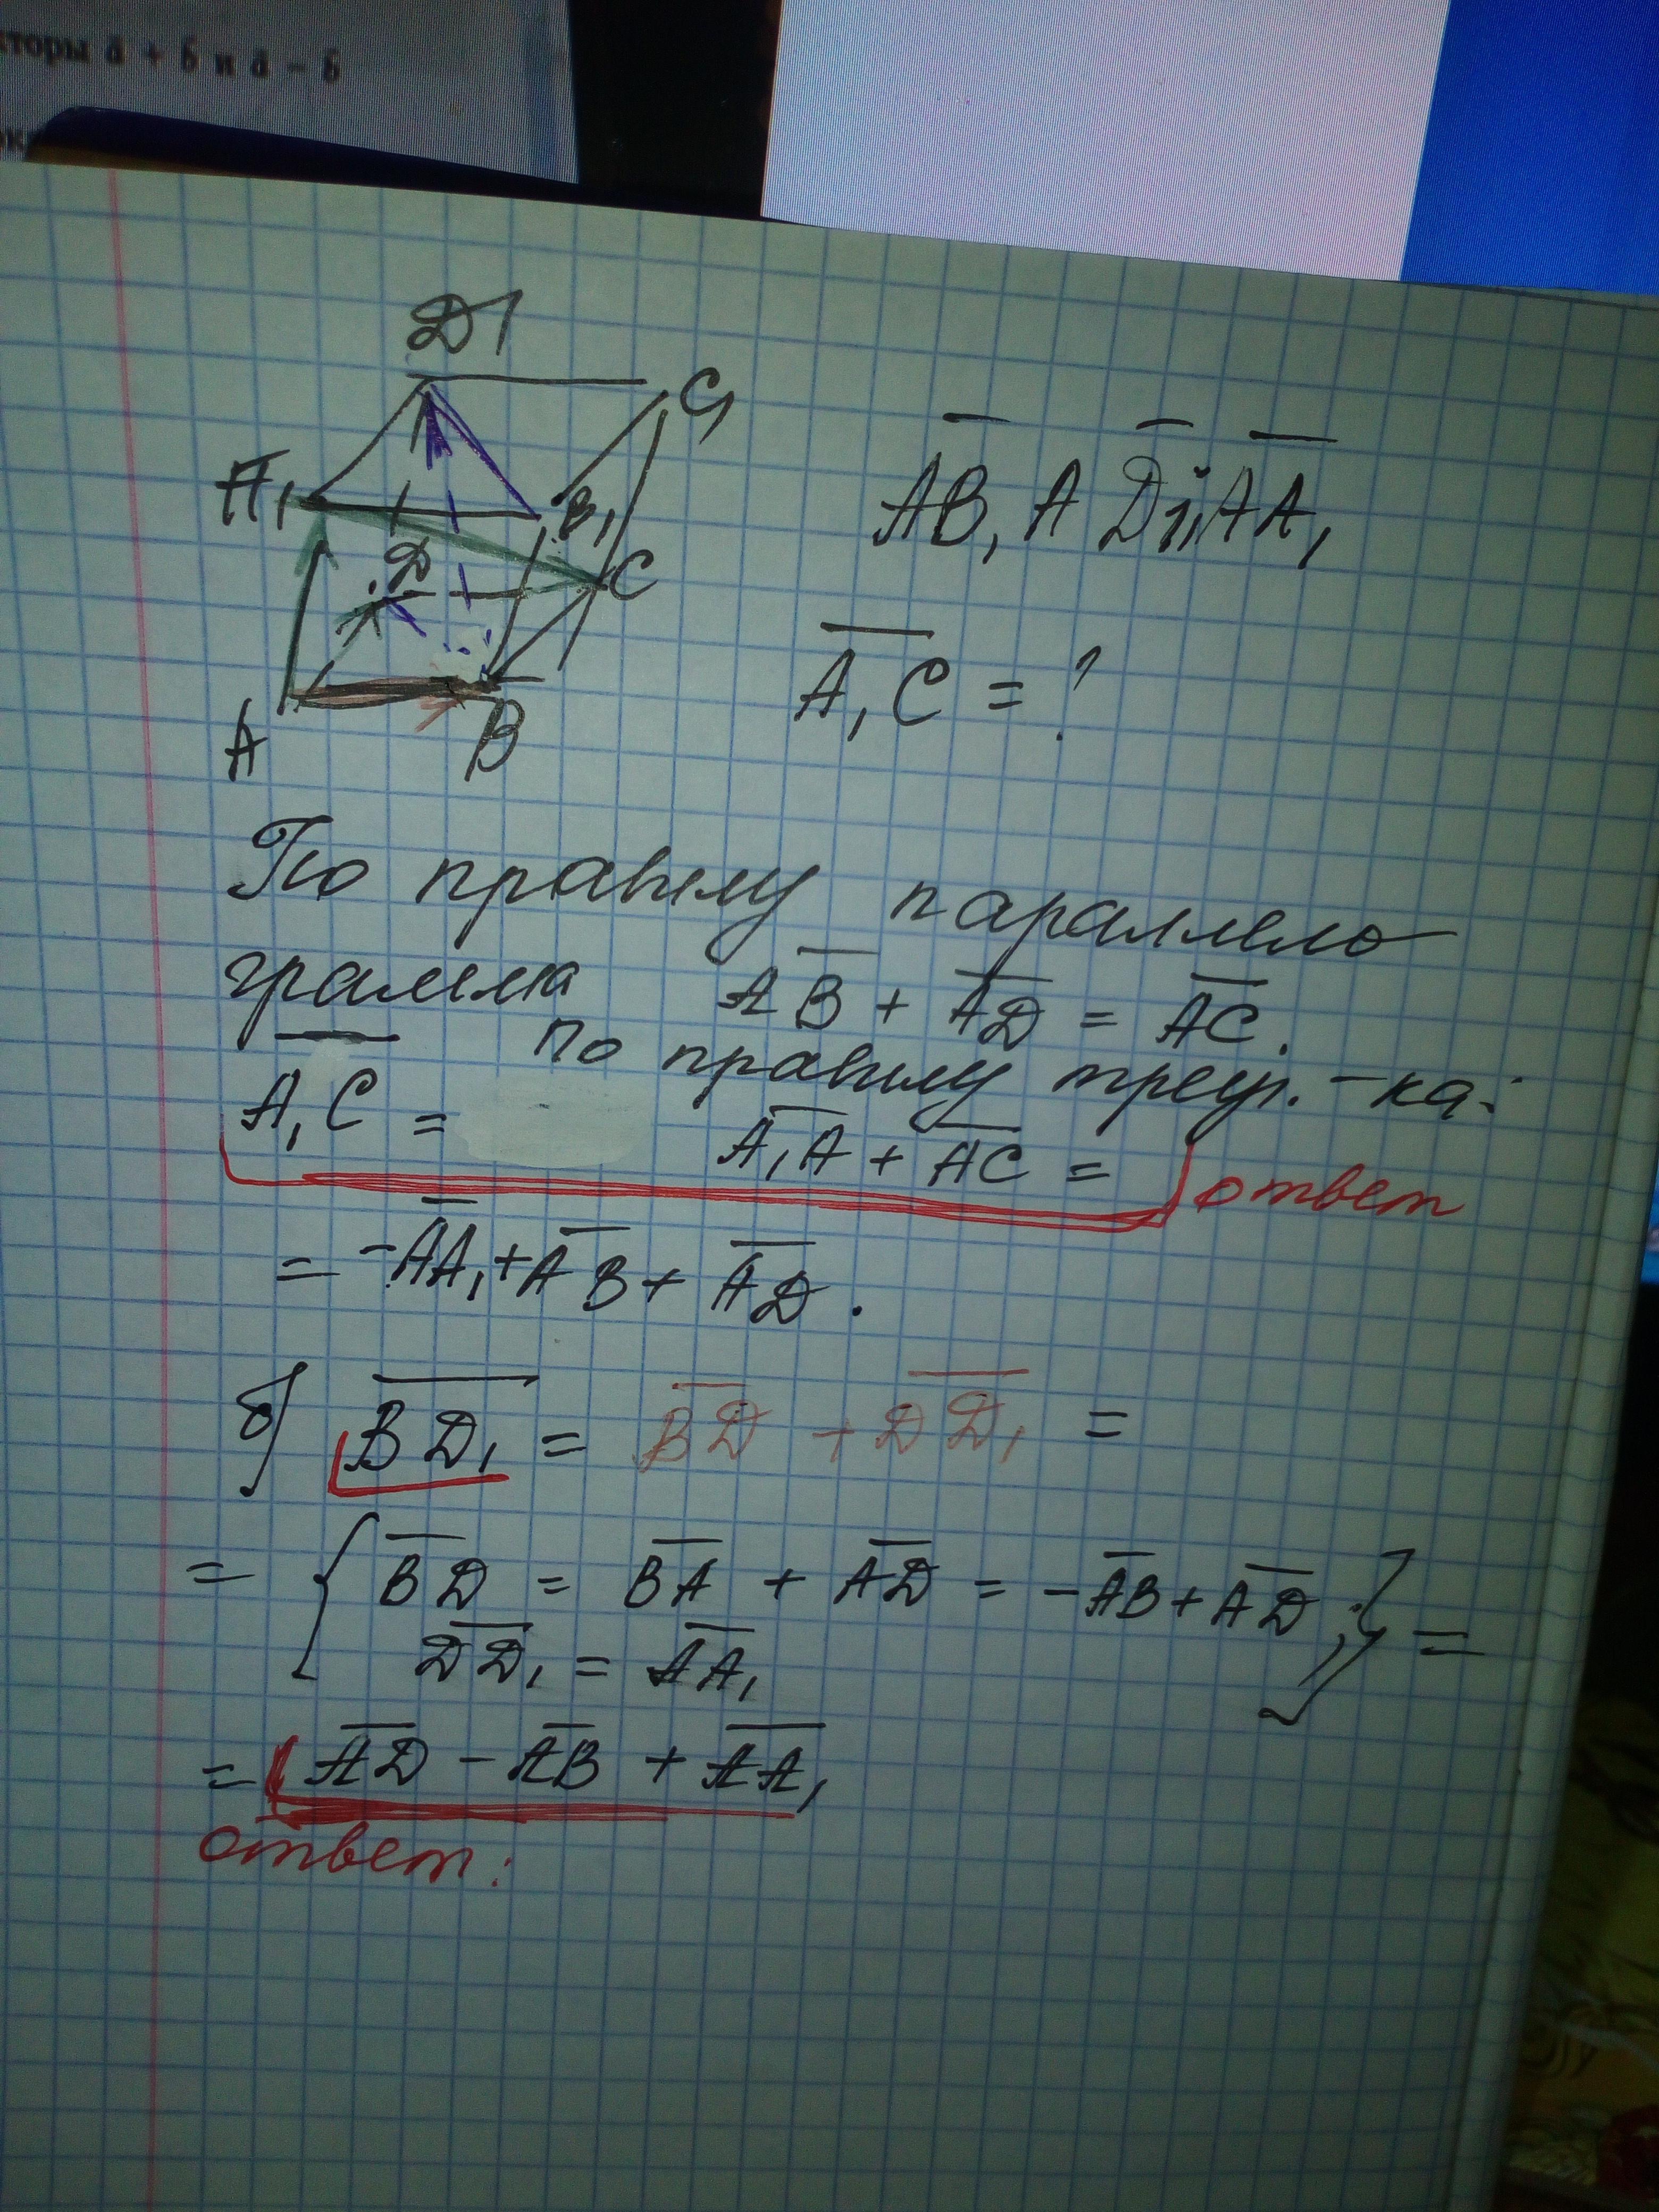 торы ā + b̄ и ā − b̄
Д1
C₁
A₁
B₁
Д
C
A
B
A̅B̅, A̅Д̅ и A̅A̅₁
A̅₁C̅ = ?
По правилу параллело
грамма A̅B̅ + A̅Д̅ = A̅C̅.
по правилу треуг.-ка:
A̅₁C̅ = A̅₁A̅ + A̅C̅ = ответ
= -A̅A̅₁ + A̅B̅ + A̅Д̅.
б) B̅Д̅₁ = B̅Д̅ + Д̅Д̅₁ =
= { B̅Д̅ = B̅A̅ + A̅Д̅ = -A̅B̅ + A̅Д̅; } =
Д̅Д̅₁ = A̅A̅₁
= A̅Д̅ - A̅B̅ + A̅A̅₁
ответ: